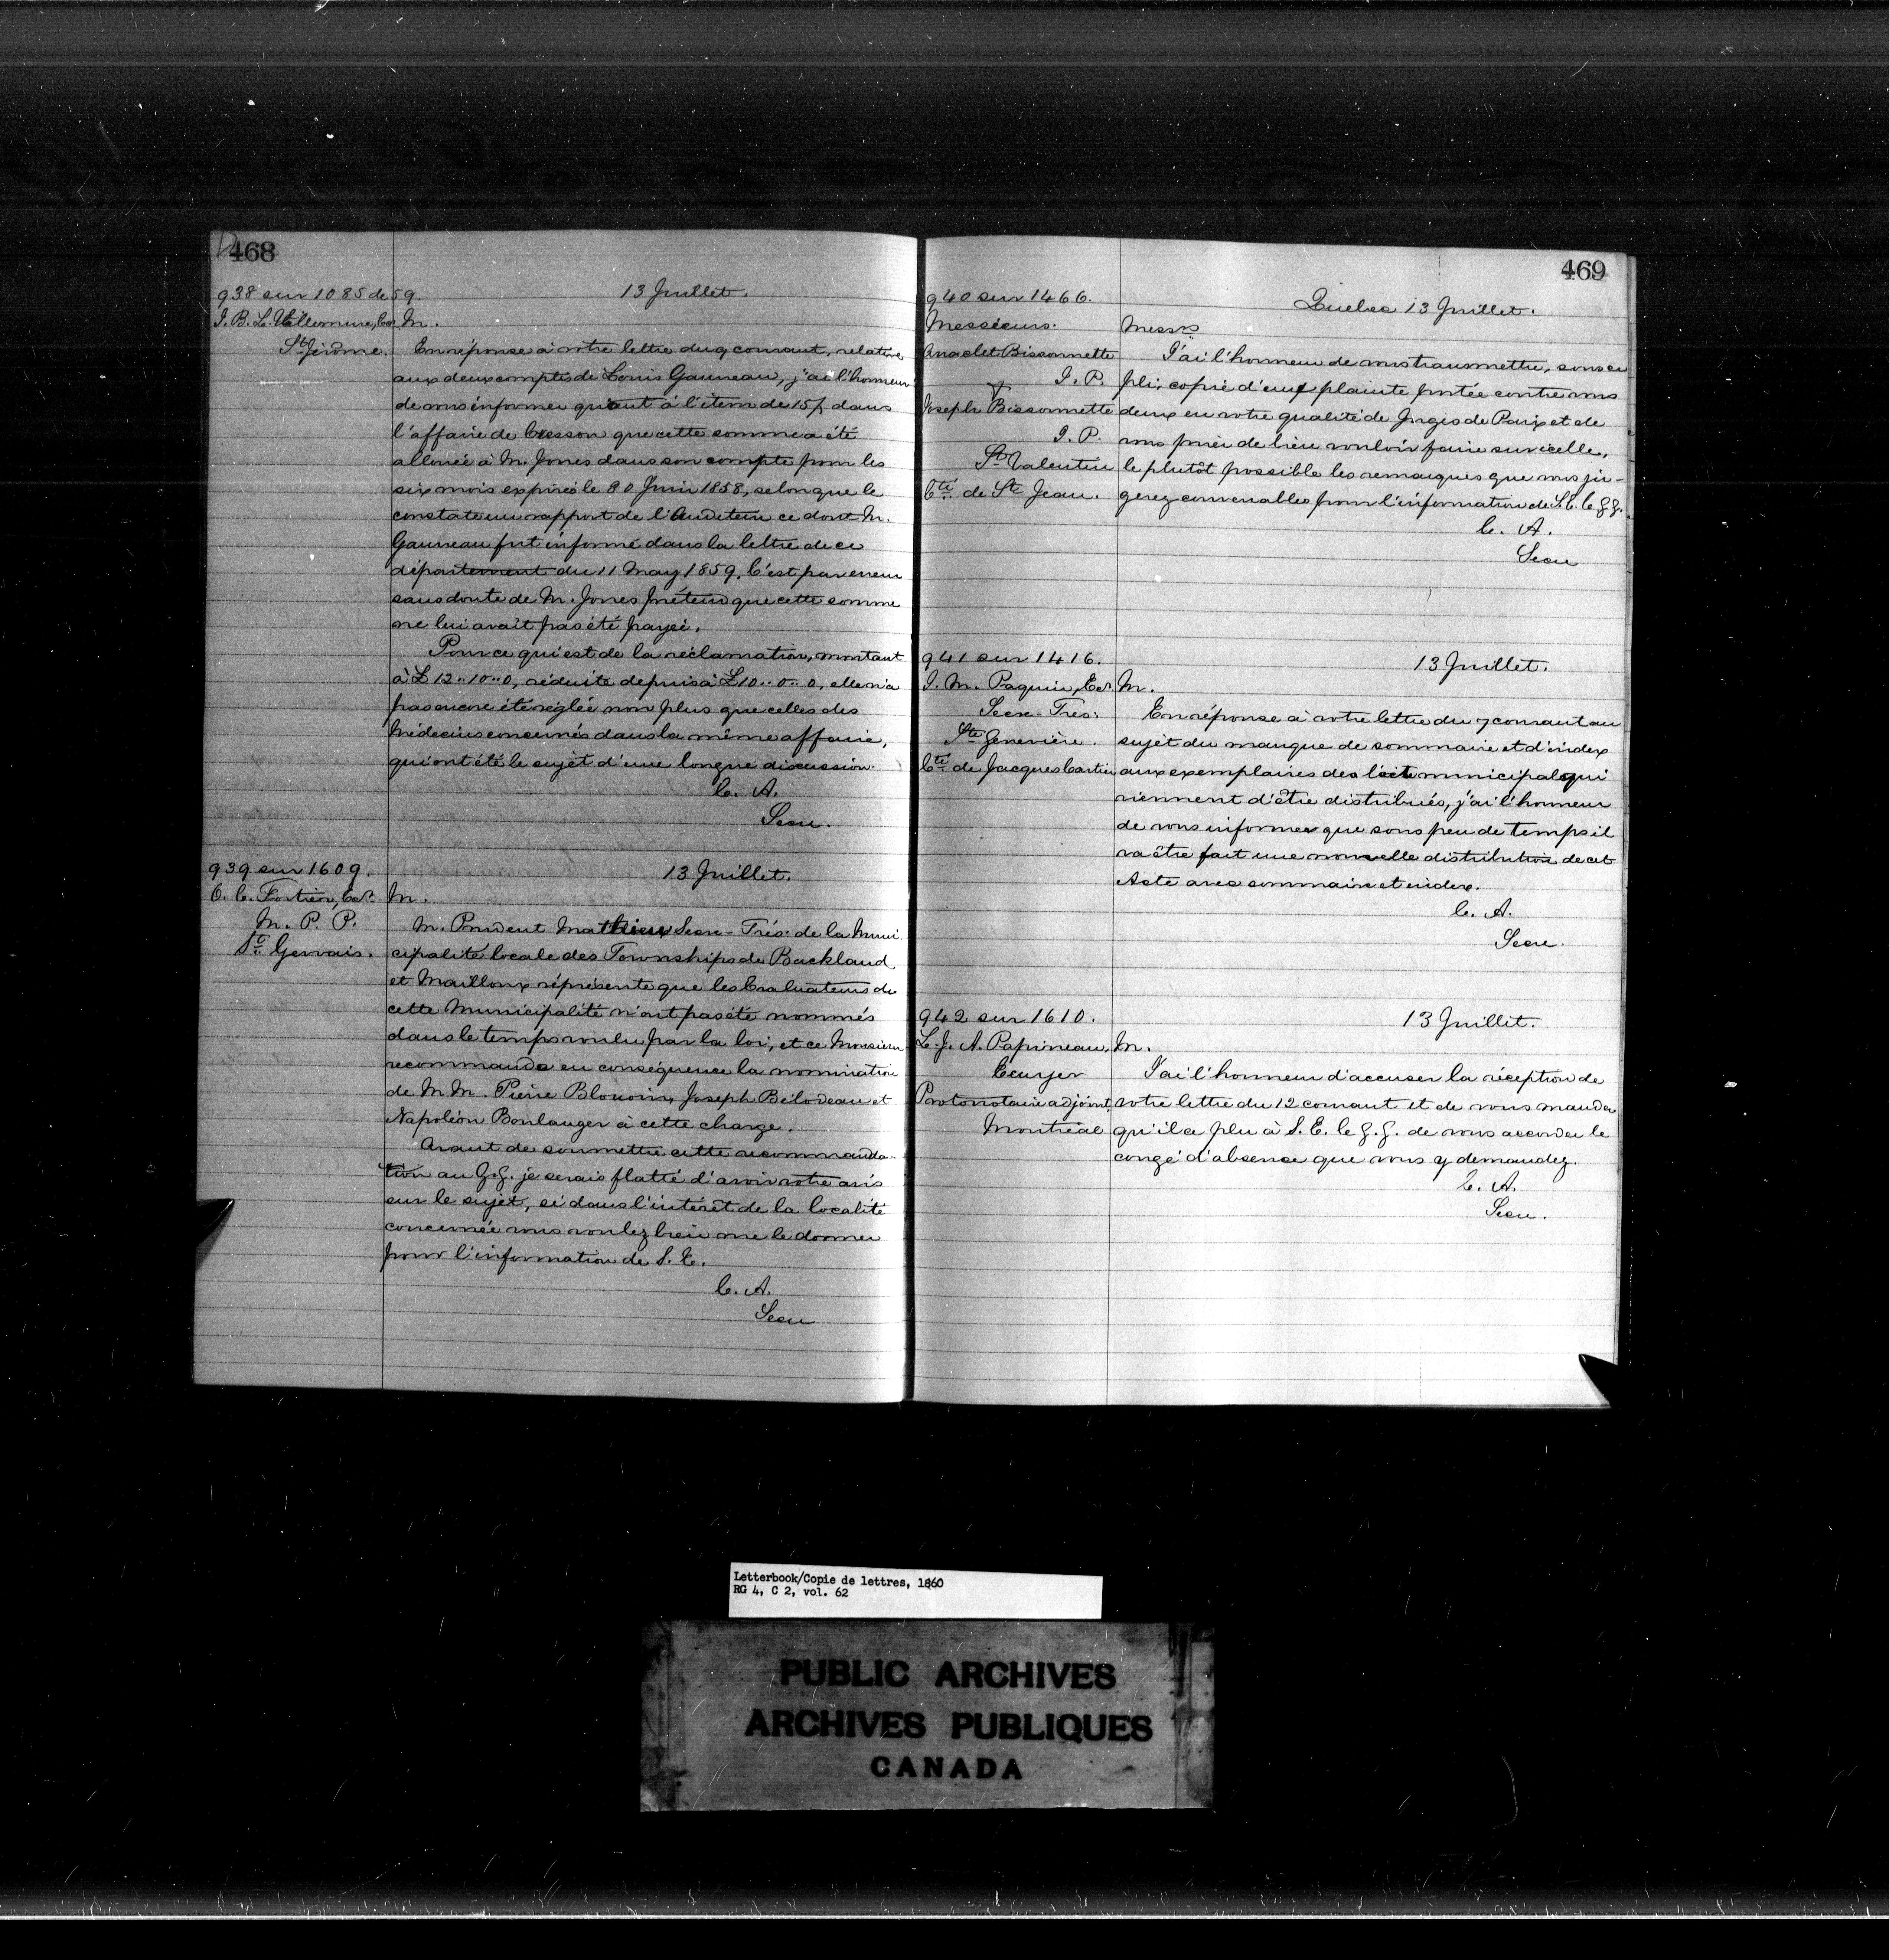 468
938 sur 1085 de 59.
13 Juillet.
J. B. L. Villemure, Ecr
St Jérôme.
M.
En réponse à votre lettre du 9 courant, relative
aux deux comptes de Louis Gauneau, j'ai l'honneur
de vous informer quant à l'item de 15/ dans
l'affaire de Cresson que cette somme a été
allouée à M. Jones dans son compte pour les
six mois expirés le 30 Juin 1858, selon que le
constate un rapport de l'Auditeur ce dont M.
Gauneau fut informé dans la lettre de ce
département du 11 May 1859. C'est par erreur
sans doute de M. Jones prétend que cette somme
ne lui avait pas été payée.
Pour ce qui est de la réclamation, montant
à £12..10..0, réduite depuis à £10..0..0, elle n'a
pas encore été réglée non plus que celles des
Médecins concernés dans la même affaire,
qui ont été le sujet d'une longue discussion.
C. A.
Secre.
939 sur 1609.
13 Juillet.
O. C. Fortier, Ecr.
M. P. P.
St Gervais.
M.
M. Prudent Mathieu Secre-Trés: de la Muni
cipalité locale des Townships de Buckland
et Mailloux réprésente que les Evaluateurs de
cette Municipalité n'ont pas été nommés
dans le temps voulu par la loi, et ce Monsieur
recommande en conséquence la nomination
de M. M. Pierre Blouoin, Joseph Bélodeau et
Napoléon Boulanger à cette charge.
Avant de soumettre cette recommanda-
tion au G. G. je serais flatté d'avoir votre avis
sur le sujet, si dans l'intérêt de la localité
concernée vous voulez bien me le donner
pour l'information de S. E.
C. A.
Secre
469
940 sur 1466.
Québec 13 Juillet.
Messieurs.
Anaclet Bissonnette
J. P.
Joseph Bissonnette
J. P.
St Valentin
Cté de St Jean.
Messrs
J'ai l'honneur de vous transmettre, sous ce
pli, copie d'une plainte portée contre vous
deux en votre qualité de Juges de Paix et de
vous prier de bien vouloir faire sur icelle,
le plutôt possible les remarques que vous ju-
gerez convenables pour l'information de S. E. le G. G.
C. A.
Secre
941 sur 1416.
13 Juillet.
J. M. Paquin, Ecr.
Secre-Tres:
Ste Geneviève.
Cté de Jacques Cartier
M.
En réponse à votre lettre du 7 courant au
sujet du manque de sommaire et d'index
aux exemplaires de l'acte municipal qui
viennent d'être distribués, j'ai l'honneur
de vous informer que sous peu de temps il
va être fait une nouvelle distribution de cet
Acte avec sommaire et index.
C. A.
Secre.
942 sur 1610.
13 Juillet.
L. J. A. Papineau,
Ecuyer
Protonotaire adjoint,
Montréal
M.
J'ai l'honneur d'accuser la réception de
votre lettre du 12 courant et de vous mander
qu'il a plu à S. E. le G. G. de vous accorder le
congé d'absence que vous y demandez.
C. A.
Secre.
Letterbook/Copie de lettres, 1860
RG 4, C 2, vol. 62
PUBLIC ARCHIVES
ARCHIVES PUBLIQUES
CANADA